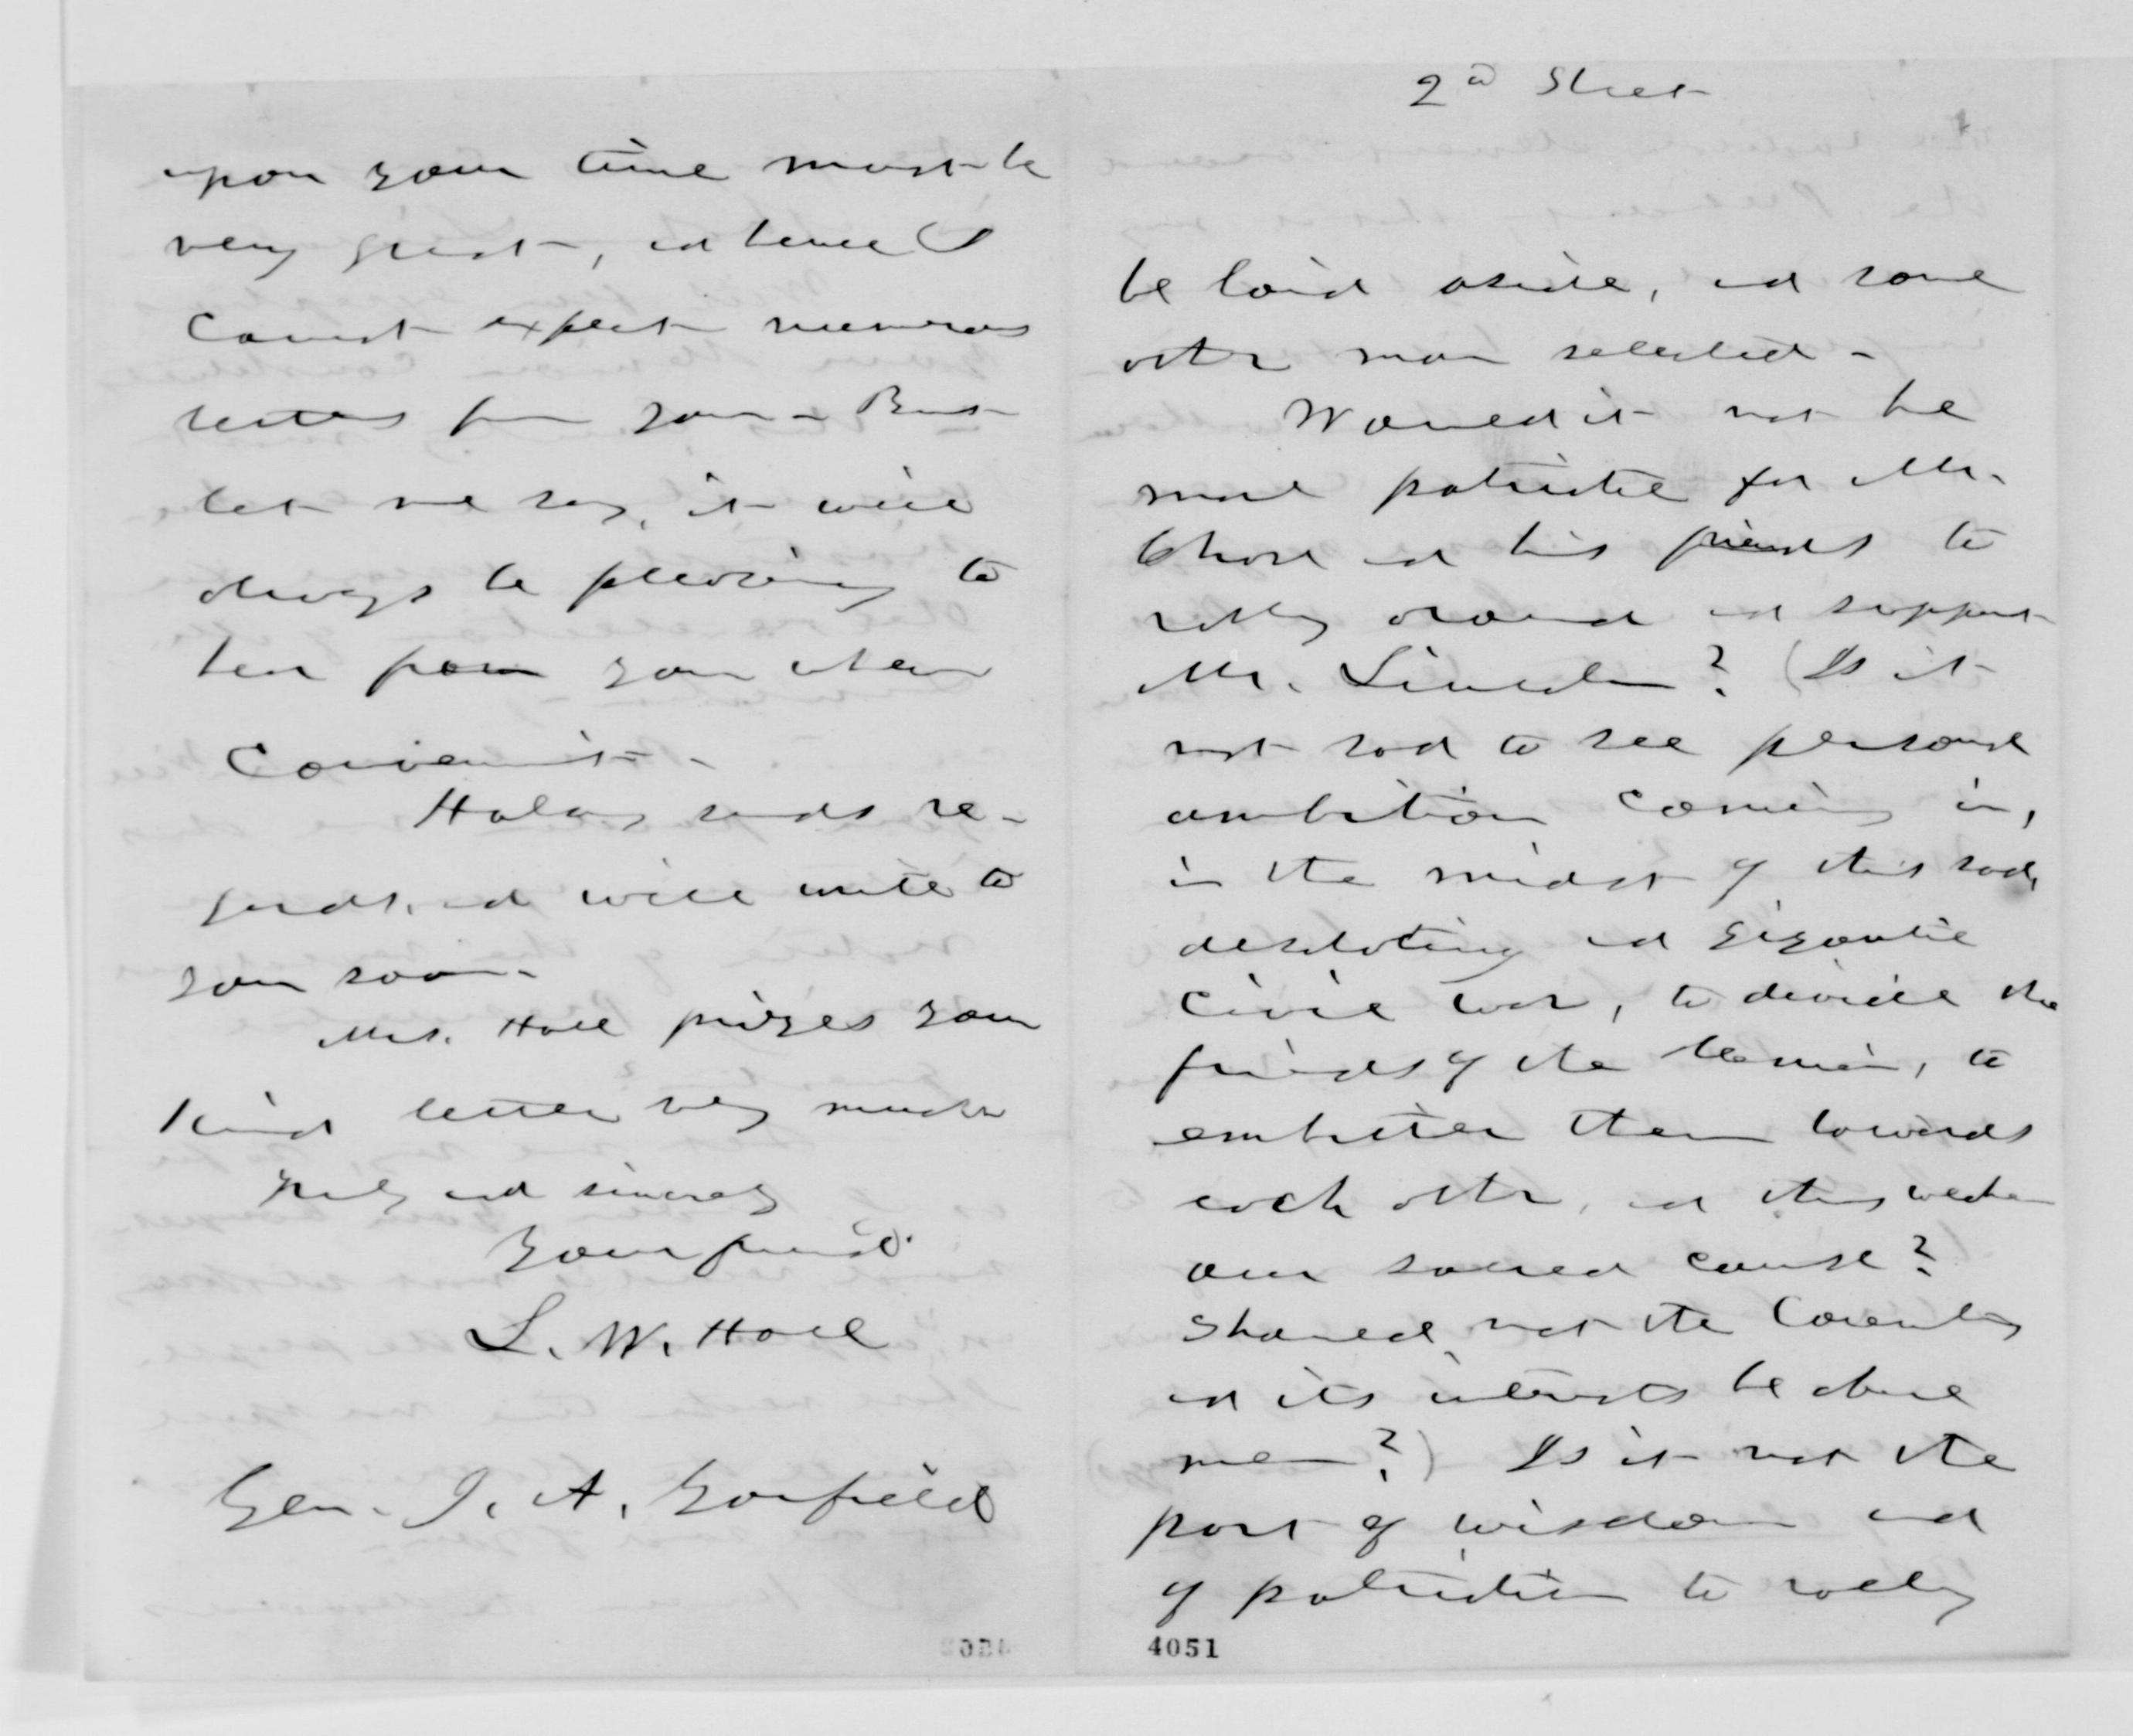 upon your time must be
very great, and hence I
cannot expect numerous
letters from you - But
let me say, it will
always be pleasing to
hear from you when
Convenient -
Halsey sends re-
gards, and will write to
you soon -
Mrs. Hall prizes your
kind letter very much
Truly and sincerely
Your friend
L. W. Hall
Gen. J. A. Garfield
2d Sheet
be laid aside, and some
other man selected -
Would it not be
more patriotic for Mr.
Chase and his friends to
rally around and support
Mr. Lincoln? (Is it
not sad to see personal
ambition coming in,
in the midst of this sad,
desolating and gigantic
Civil war, to divide the
friends of the Union, to
embitter them towards
each other, and thus weaken
our sacred cause?
Should not the Country
and its interests be above
men?) Is it not the
part of wisdom and
of patriotism to rally
4051